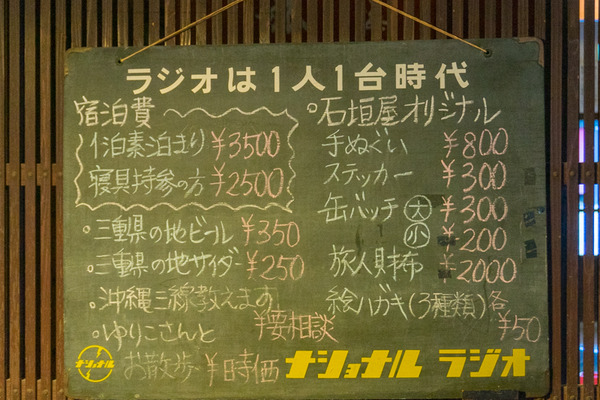 ラジオは1人1台時代
宿泊費
1泊素泊まり ¥3500
寝具持参の方 ¥2500
・三重県の地ビール ¥350
・三重県の地サイダー ¥250
・沖縄三線教えます
¥要相談
・ゆりこさんと
お散歩 ¥時価
○石垣屋オリジナル
手ぬぐい ¥800
ステッカー ¥300
缶バッチ 大 ¥300
小 ¥200
旅人財布 ¥2000
絵ハガキ(3種類)各
¥50
ナショナル
ナショナル ラジオ